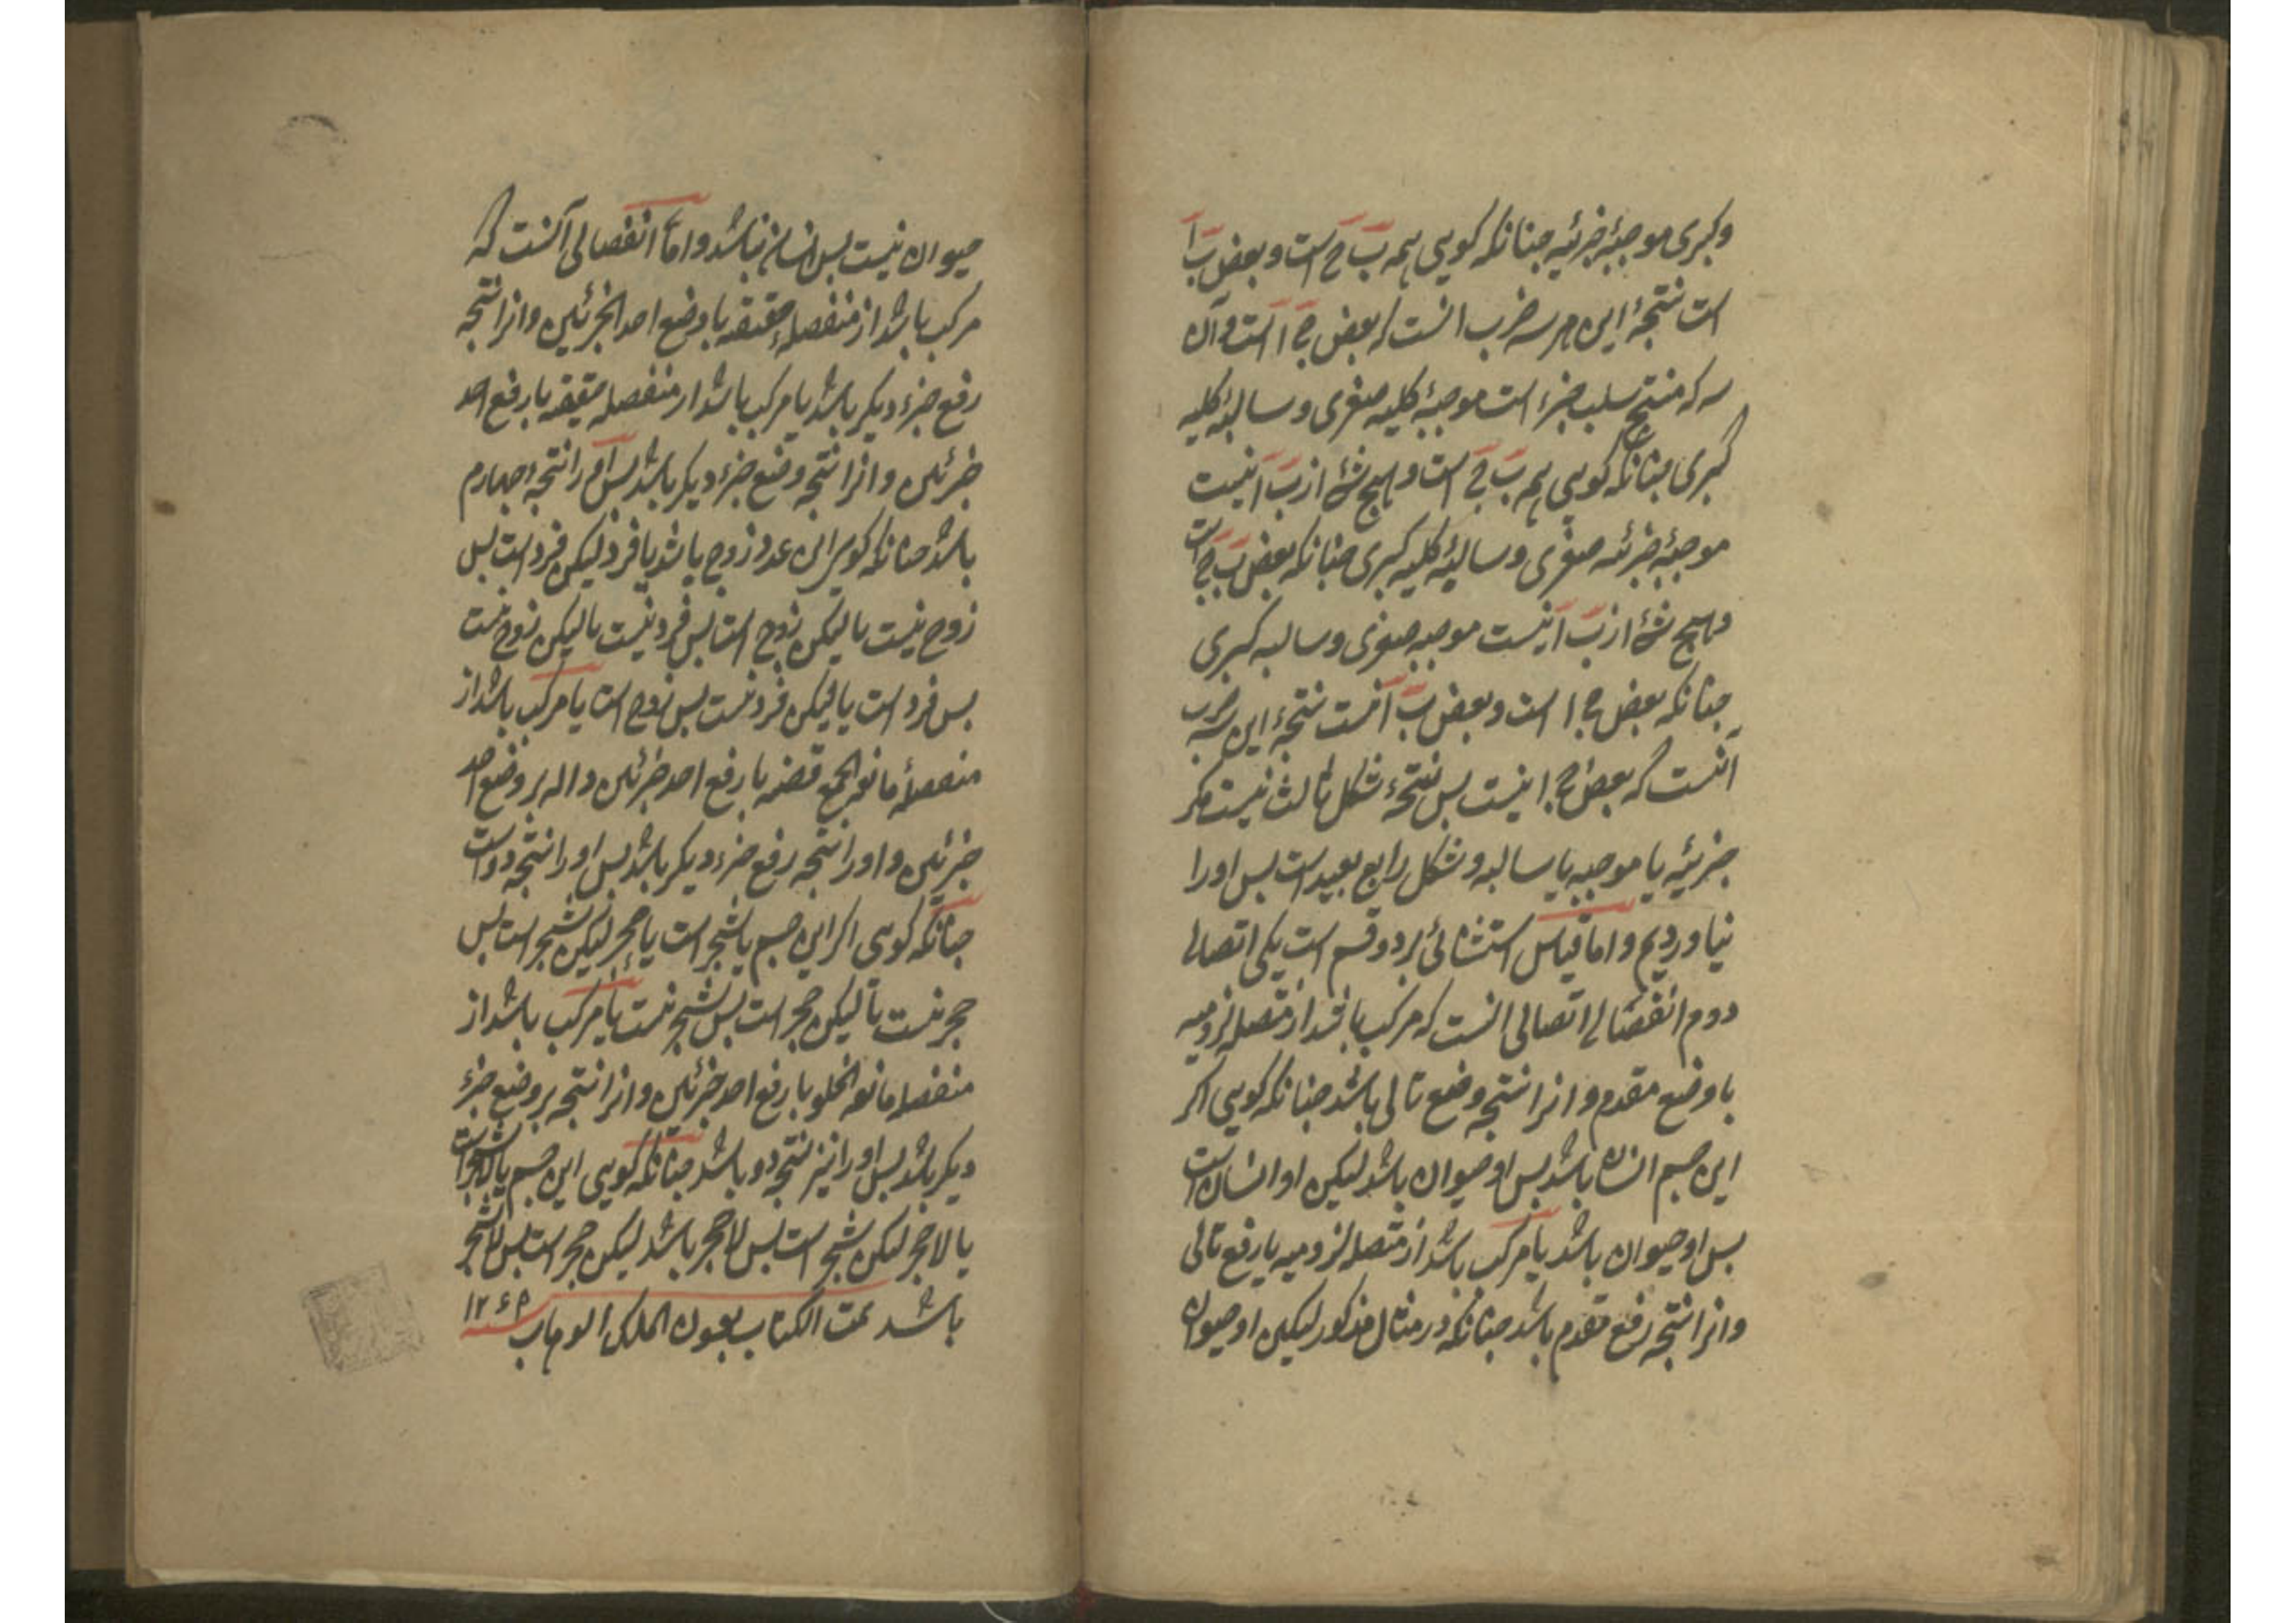 وکبری موجبهٔ جزئیه چنانکه کویی همه ب ج است و بعض ب ا
است نتیجهٔ این هر سه ضرب انست که بعض ج ا است و آن
سه که منتج سلب جزء است موجبهٔ کلیه صغری و سالبهٔ کلیه
کبری چنانکه کویی همه ب ج است و هیچ شئ از ب ا نیست
موجبهٔ جزئیه صغری و سالبهٔ کلیه کبری چنانکه بعض ب ج است
وهیچ شئ از ب ا نیست موجبه صغری و سالبه کبری
چنانکه بعض ج ا است و بعض ب ا نیست نتیجهٔ این سه ضرب
آنست که بعض ج ا نیست بس نتیجهٔ شکل ثالث نیست مکر
جزئیه یا موجبه یا سالبه و شکل رابع بعید است بس اورا
نیاوردیم و اما قیاس استثنائی بر دو قسم است یکی اتصالی
دوم انفصالی اتصالی انست که مرکب باشد از متصله لزومیه
با وضع مقدم و انرا نتیجه وضع تالی باشد چنانکه کویی اکر
این جسم انسان باشد بس او حیوان باشد لیکن او انسان است
بس او حیوان باشد یا مرکب باشد از متصله لزومیه با رفع تالی
وانرا نتیجه رفع مقدم باشد چنانکه در مثال مذکور لیکن او حیوان
حیوان نیست بس انسان نباشد و اما انفصالی آنست که
مرکب باشد از منفصلهٔ حقیقیه با وضع احد الجزئین و انرا نتیجه
رفع جزء دیکر باشد یا مرکب باشد از منفصله حقیقیه با رفع احد
جزئین و انرا نتیجه وضع جزء دیکر باشد بس را نتیجه چهارم
باشد چنانکه کویی این عدد زوج باشد یا فرد لیکن فرد است بس
زوج نیست یا لیکن زوج است بس فرد نیست یا لیکن زوج نیست
بس فرد است یا لیکن فرد نیست بس زوج است یا مرکب باشد از
منفصلهٔ مانعة الجمع با رفع احد جزئین بر وضع احد
جزئین و اورا نتیجه رفع جزء دیکر باشد بس اورا نتیجه دو است
چنانکه کویی اکر این جسم یا شجر است یا حجر لیکن شجر است بس
حجر نیست یا لیکن حجر است بس شجر نیست یا مرکب باشد از
منفصله مانعة الخلو با رفع احد جزئین و انرا نتیجه بر وضع جزء
دیکر باشد بس اورا نیز نتیجه دو باشد چنانکه کویی این جسم یا لاشجر است
یا لا حجر لیکن شجر است بس لا حجر باشد لیکن حجر است بس لا شجر
باشد تمت الکتاب بعون الملک الوهاب